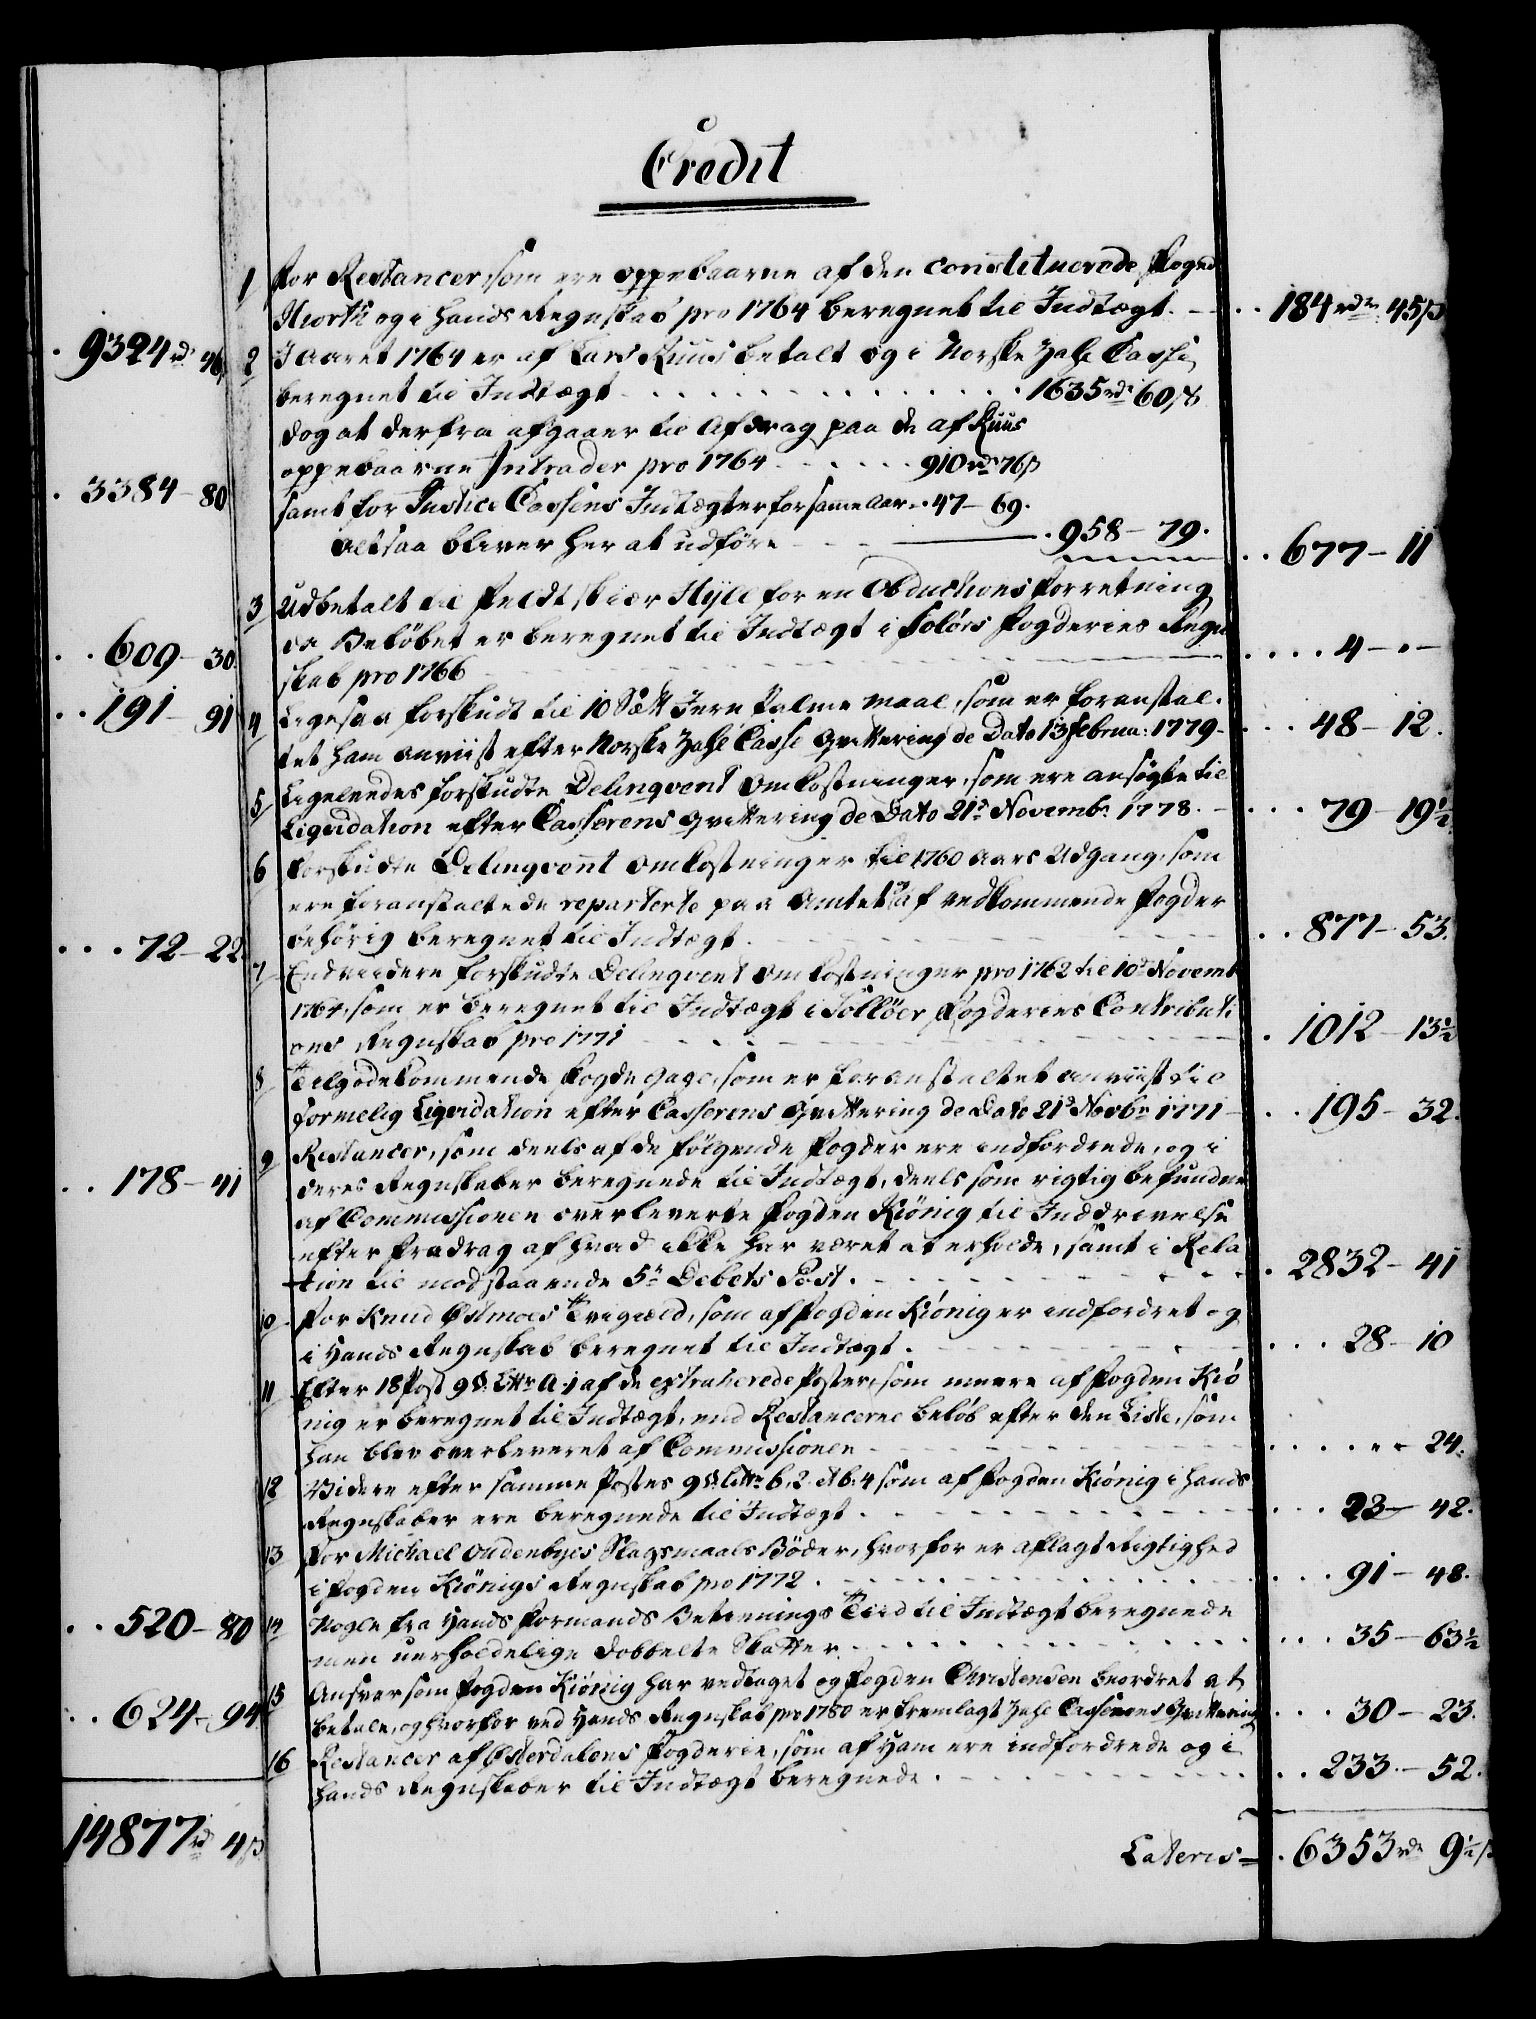 Credit
1 For Restancer, som ere oppebaarne af den constituerede Foged
Hiorth og i hands Regnskab pro 1764 beregnet til Indtægt. .. 184 rdr 45 ß
9324 rd 46 ß
2 I Aaret 1764 er af Lars Ruus betalt og i Norske Zahl Casse
beregnet til Indtægt . . . 1635 rdr 60 ß
dog at derfra afgaaer til Afdrag paa de af Ruus
oppebaarne Intrader pro 1764 . . . 910 rdr 76 ß
3384 - 80
samt for Justice Cassens Indtægter for samme Aar .. 47 - 69.
. 958 - 79.
altsaa bliver her at udføre .. 677 - 11
3 Udbetalt til Feldtskiær Hyll for en Obductions Forretning
da Beløbet er beregnet til Indtægt i Solørs Fogderies Regn
skab pro 1766 .... 4 - " -
.. 609 - 30
.. 191 - 91
4 Ligesaa forskudt til 10 Sætt Jern Palme maal, som er foranstal-
tet ham anviist efter Norske Zahl Casse Qvittering de Dato 13 Februa: 1779 - ... 48 - 12.
5 Ligeledes forskudte Delinqvent Omkostninger, som ere ansøgte til
Liqvidation efter Casserens Qvittering de Dato 21d Novembr 1778. - ... 79 - 19½
6 Forskudte Delinqvent Omkostninger til 1760 Aars Udgang, som
ere foranstaltede reparterte paa Amtet og af vedkommende Fogder
behørig beregnet til Indtægt. .. 877 - 53.
... 72 - 22
7 Endvidere forskudte Delinqvent Omkostninger pro 1762 til 10d Novemb
1764, som er beregnet til Indtægt i Solløer Fogderies Contributi
ons Regnskab pro 1771 . 1012 - 13½
8 Tilgodekommende Fogde Gage, som er foranstaltet anviist til
formelig Liqvidation efter Casserens Qvittering de Dato 21d Novbr 1771 - .. 195 - 32.
9 Restancer, som deels af de følgende Fogder ere indfordrede, og i
deres Regnskaber beregnede til Indtægt, deels som rigtig befundne
.. 178 - 41
af Commissionen overleverte Fogden Kiönig til Inddrivelse
efter fradrag af hvad ikke har været at erholde, samt i Rela
tion til modstaaende 5te Debets Post. . 2832 - 41
10 For Knud Østmoes Tvigiæld, som af Fogden Kiönig er indfordret og
i Hands Regnskab beregnet til Indtægt. ... 28 - 10
11 Efter 18 Post 9d. Littr A. j af de extraherede Poster, som meere af Fogden Kiö
nig er beregnet til Indtægt, end Restancerne beløb efter den Liste, som
han blev overleveret af Commissionen .... " - 24.
12 Videre efter samme Postes 9d. Littr b. 2. et b. 4 som af Fogden Kiönig i hands
Regnskaber ere beregnede til Indtægt . ... 23 - 42.
13 For Michael Oudenbyes Slagsmaals Bøder, hvorfor er aflagt Rigtighed
i Fogden Kiönigs Regnskab pro 1772. ... 91 - 48.
.. 520 - 80
14 Nogle fra Hands Formands Betienings Tiid til Indtægt beregnede
men uerholdelige dobbelte Skatter. ... 35 - 63½
15 Ansvar som Fogden Kiönig har vedtaget og Fogden Christensen beordret at
betale, og hvorfor ved Hands Regnskab pro 1780 er fremlagt Zahl Casserens Qvittering ... 30 - 23.
.. 624 - 94
16 Restancer af Østerdalens Fogderie, som af Ham ere indfordrede og i
hands Regnskaber til Indtægt beregnede. .. 233 - 52.
14877 rd 4 ß
Lateris = . 6353 rdr 9½ ß